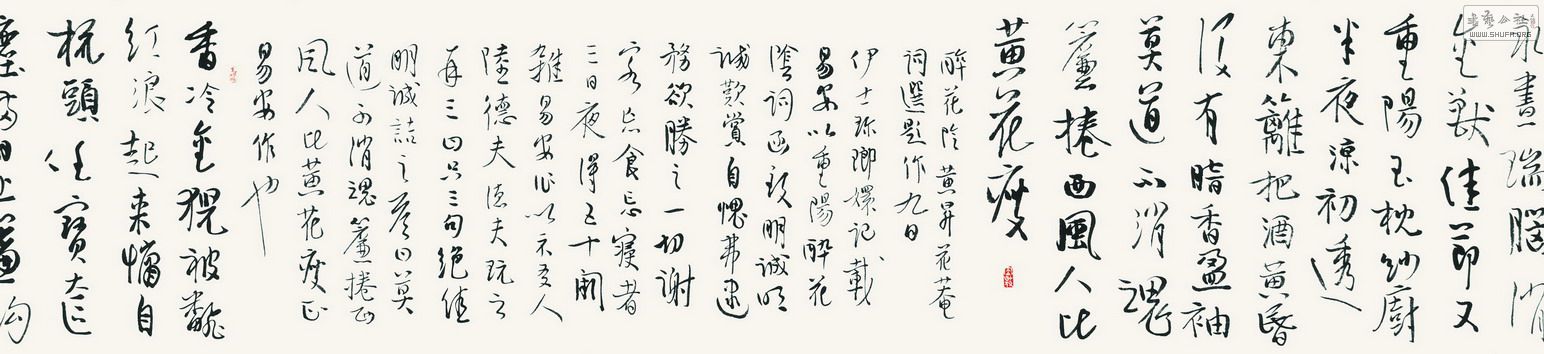 永晝瑞腦消
金獸佳節又
重陽玉枕紗廚
半夜涼初透
東籬把酒黃昏
後有暗香盈袖
莫道不消魂
簾捲西風人比
黃花瘦
醉花陰 黃昇花菴
詞選題作九日
伊士珍瑯嬛記載
易安以重陽醉花
陰詞函致明誠明
誠歎賞自愧弗逮
務欲勝之一切謝
客忘食忘寢者
三日夜得五十闋
雜易安作以示友人
陸德夫德夫玩之
再三曰只三句絕佳
明誠詰之答曰莫
道不消魂簾捲西
風人比黃花瘦正
易安作也
香冷金猊被翻
紅浪起來慵自
梳頭任寶奩
塵滿日上簾鉤
書藝公社
WWW.SHUFA.ORG